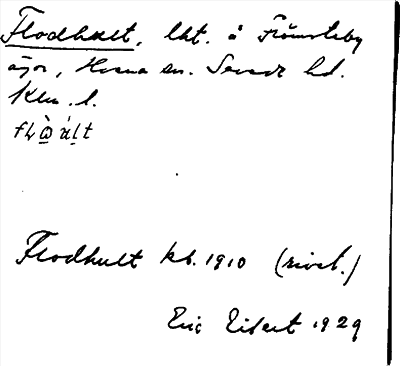 Flodhult, lht. å Frömsteby
ägor, Horna sn. Sevede hd.
Klm. l.
Flodhult kb. 1910 (rivet.)
Eric Eifert 1929